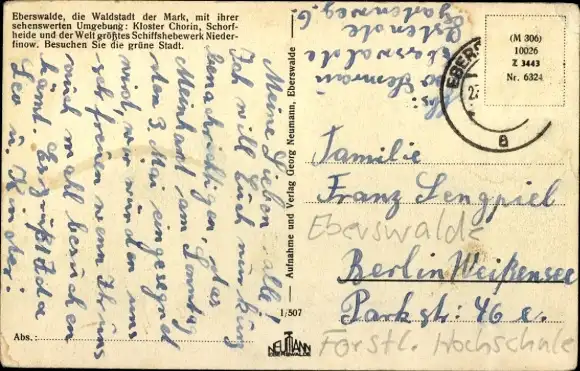 Eberswalde, die Waldstadt der Mark, mit ihrer
sehenswerten Umgebung: Kloster Chorin, Schorf-
heide und der Welt größtes Schiffshebewerk Nieder-
finow. Besuchen Sie die grüne Stadt.
Meine Lieben alle!
Ich will Euch nur kurz
benachrichtigen, das
Meinhart am Sonntag
den 3. Mai eingesegnet
wird, wir würden uns
sehr freuen wenn Ihr uns
auch mahl besuchen
kämt. Es grüßt Ida
Leo u. Kinder.
Abs.:
Aufnahme und Verlag Georg Neumann, Eberswalde
1/507
NEUMANN
EBERSWALDE
Abs:
Eberswalde
Ostende
Gartenweg 6
EBERS
a
(M 306)
10026
Z 3443
Nr. 6324
Familie
Franz Lengpiel
Eberswalde
Berlin Weißensee
Parkstr: 46 c.
Forstl. Hochschule